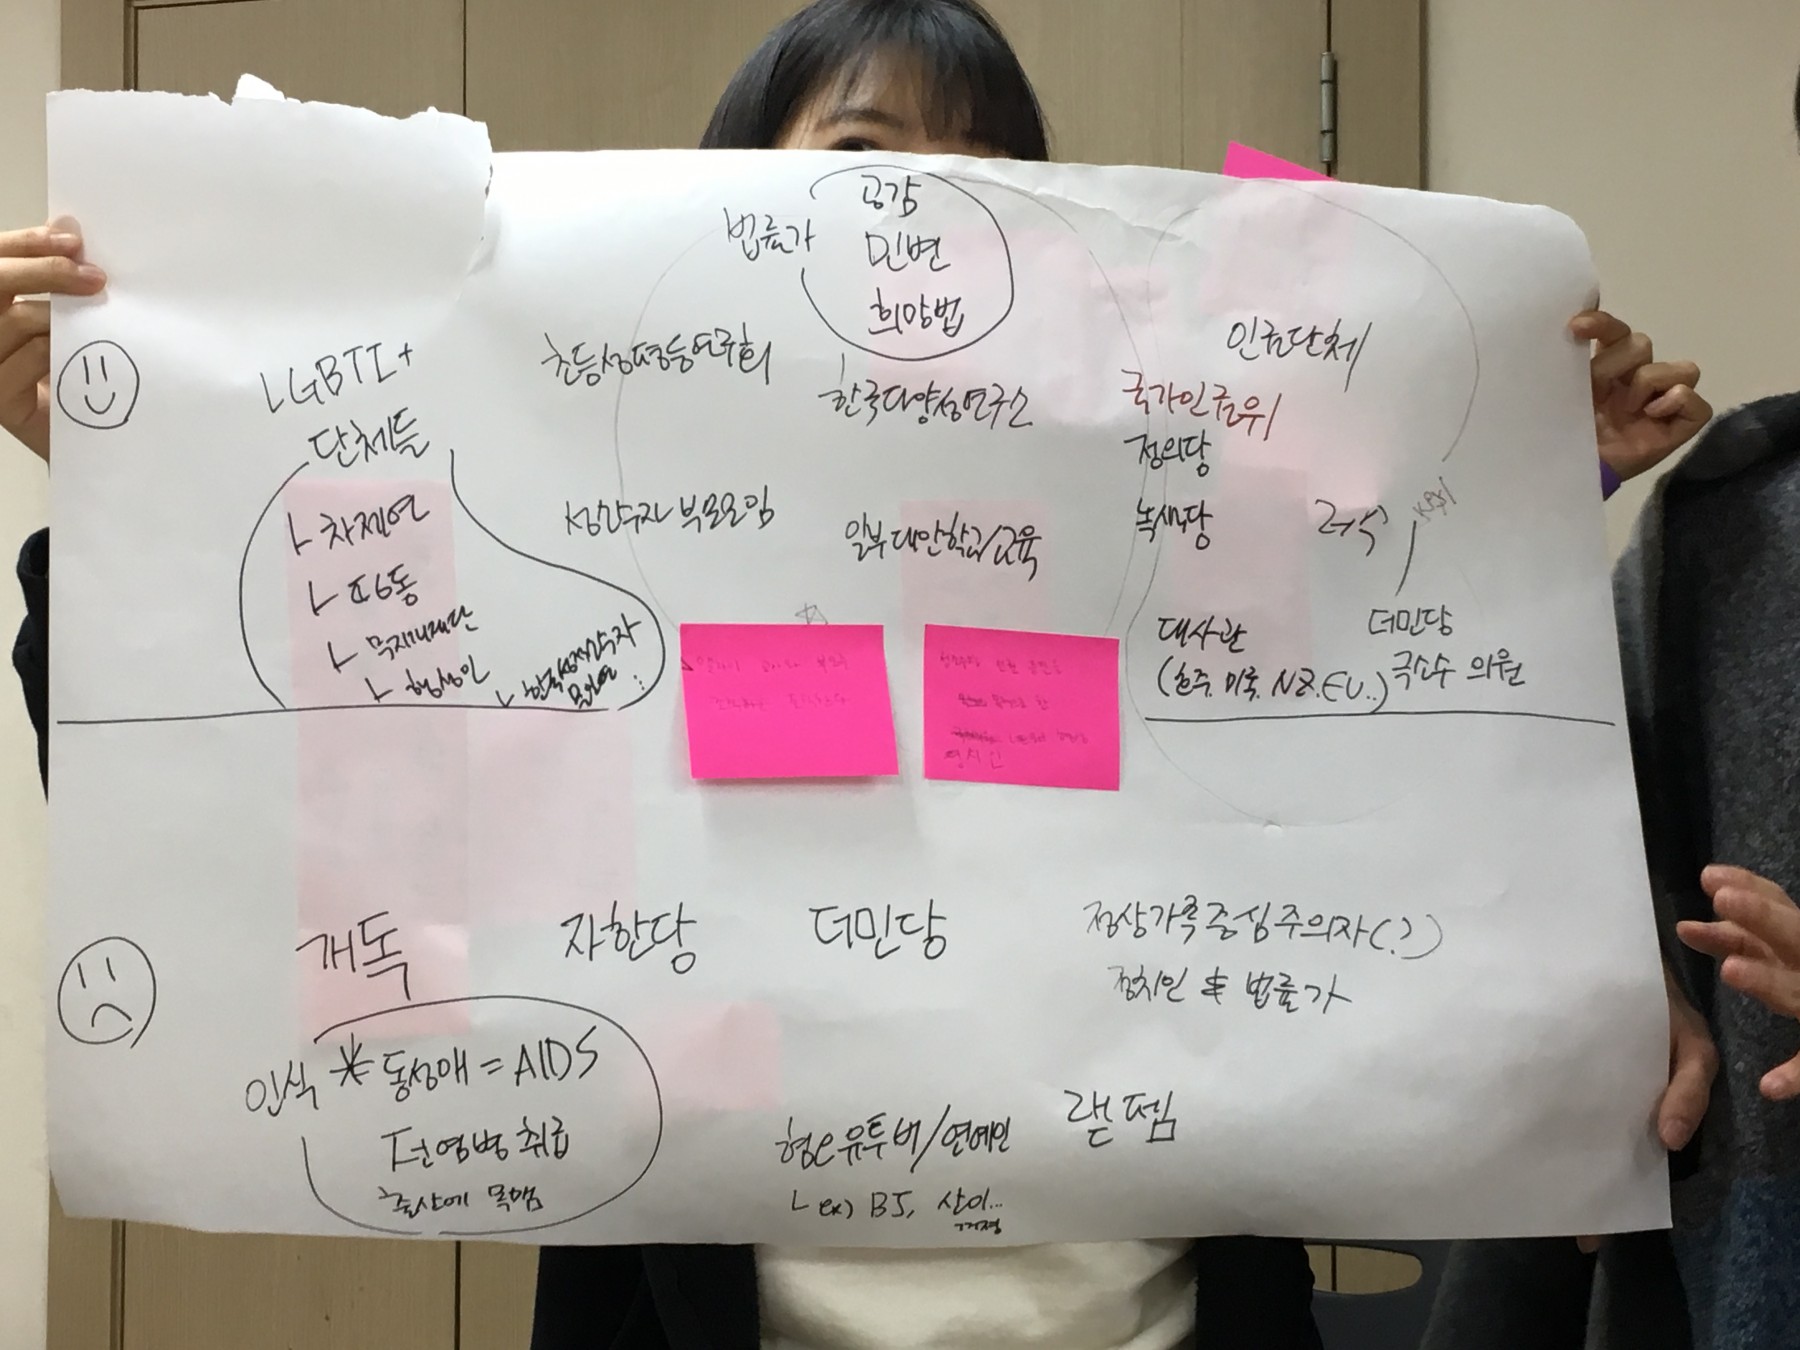 공감
법률가
민변
희망법
LGBTI+
단체들
차제연
무지개재단
행성인
한국성적소수자
초등성평등연구회
한국다양성연구소
성소수자 부모모임
일부 대안학교/교육
인권단체
국가인권위
정의당
녹색당
더민당
극소수 의원
대사관
(호주, 미국, NZ, EU..)
개독
자한당
더민당
정상가족중심주의자(?)
정치인 & 법률가
인식
동성애 = AIDS
전염병 취급
출산에 목맴
혐오유투버/연예인
ex) BJ, 산이...
랟펨